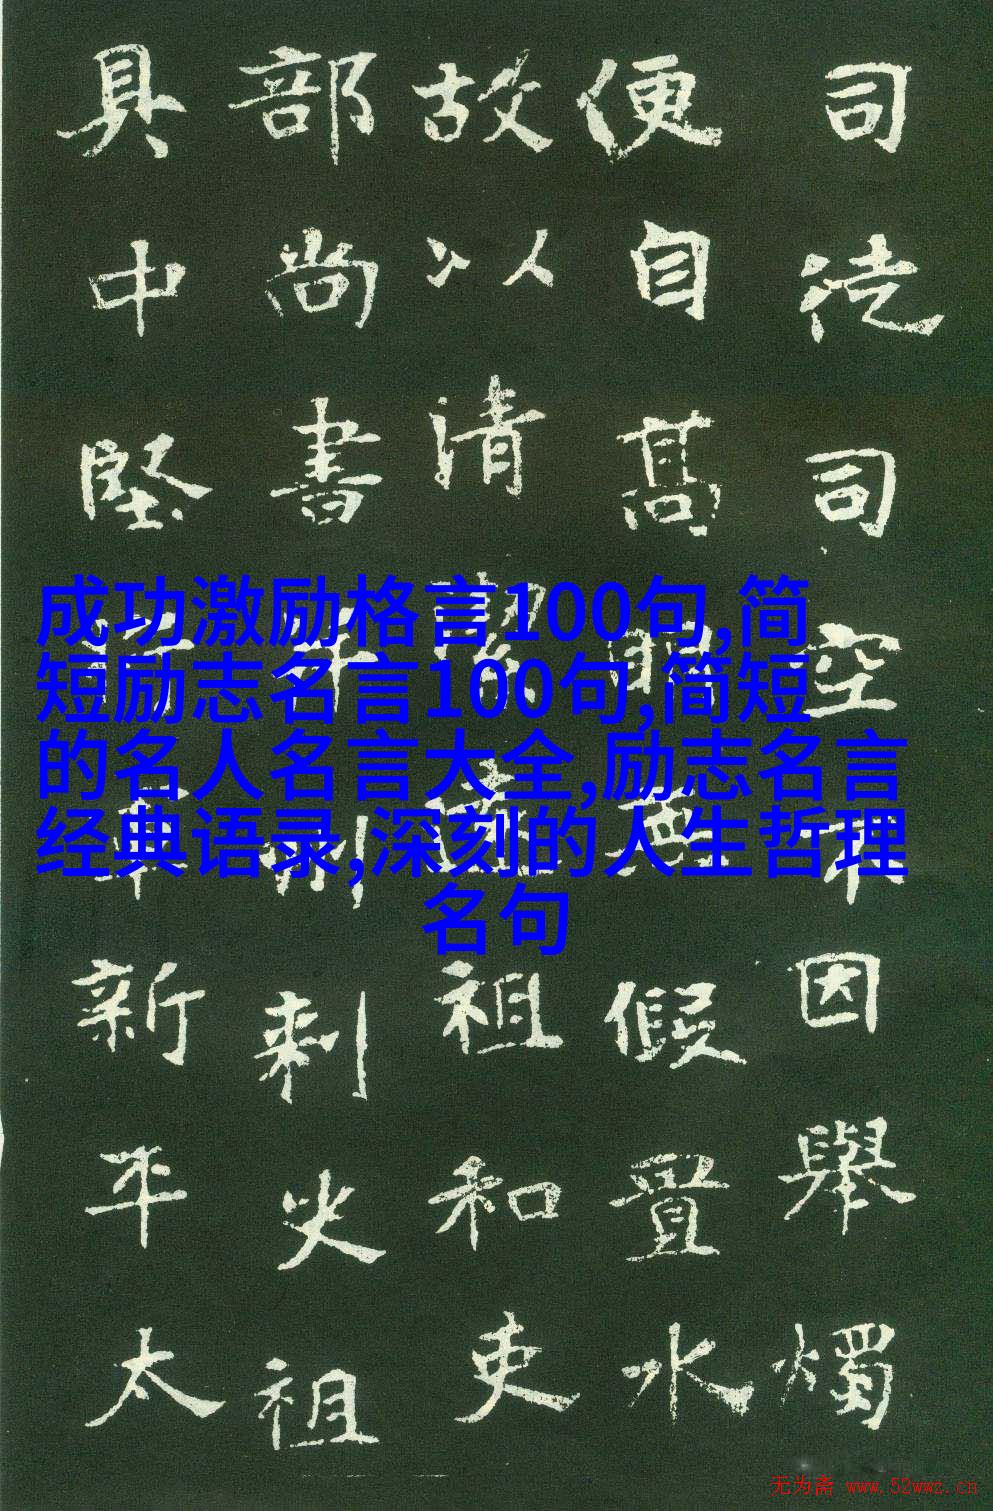 司徒司空因舉燭
便自高假置水
故以清祖和吏
部尚書刺史祖
具中堅將軍新平太
成功激励格言100句,简
短励志名言100句,简短
的名人名言大全,励志名言
经典语录,深刻的人生哲理
名句
无为斋 www.52wwz.cn